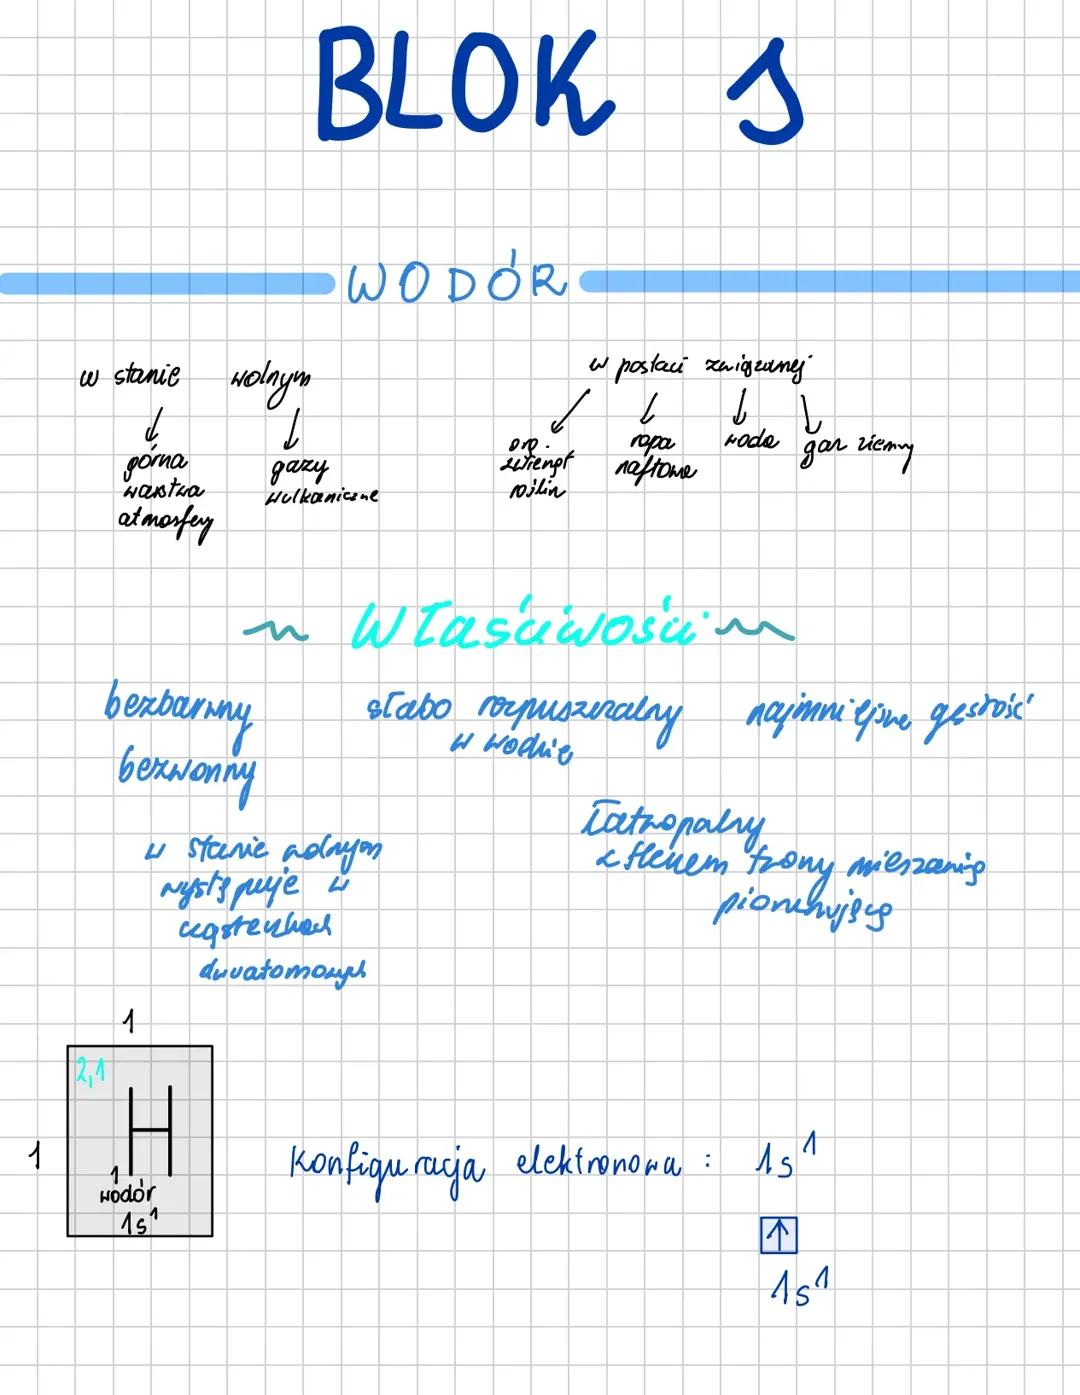 BLOK s
WODÓR
w stanie wolnym
górna
warstwa
atmosfery
gazy
wulkaniczne
w postaci związanej
org.
zwierząt
roślin
ropa
naftowa
woda
gaz ziemny
Właściwości
bezbarwny
bezwonny
słabo rozpuszczalny
w wodzie
najmniejsza gęstość
w stanie wolnym
występuje w
cząsteczkach
dwuatomowych
Łatwopalny
z tlenem tworzy mieszaninę
piorunującą
1
2,1
H
1
1
wodór
1s¹
Konfiguracja elektronowa : 1s¹
↑
1s¹